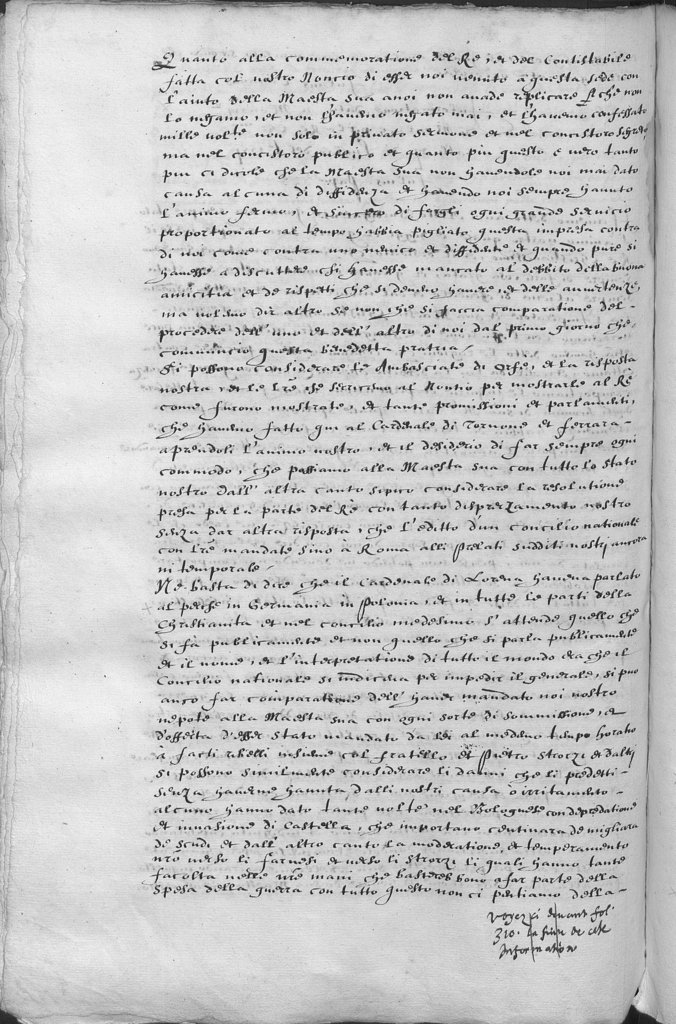 Quanto alla commemoratione del Re, et del Contistabile
fatta col nostro Noncio di esser noi venuto a questa sede con
l'aiuto della Maesta sua a noi non accade replicare che non
lo neghamo, et non l'havemo negato mai, et l'havemo confessato
mille volte non solo in privato sermone et nel concistoro segreto
ma nel concistoro publico et quanto piu questo e vero tanto
piu ci duole che la Maesta sua non havendole noi mai dato
causa alcuna di diffidenza et havendo noi sempre havuto
l'animo fermo, et sincero di fargli ogni grande servicio
proportionato al tempo habbia pigliato questa impresa contra
di noi come contra uno inimico et diffidente et quando pure si
havesse a discuttere chi havesse mancato al debbito della buona
amicitia et de rispetti che si devono havere, et delle avvertenze,
ma volemo dir altro se non che si faccia comparatione del-
procedere dell'uno et dell'altro di noi dal primo giorno che
comincio questa benedetta pratica.
Si possono considerare le Ambasciate di Orfe, et la risposta
nostra, et le lre che scrivemo al Nontio per mostrarle al Re
come furono mostrate, et tante promissioni et parlamenti,
che havemo fatto qui al Cardenale di Tornone et Ferrara-
aprendoli l'animo nostro, et il desiderio di far sempre ogni
commodo, che possiamo alla Maesta sua con tutto lo stato
nostro dall'altra canto si puo considerare la resolutione
presa per la parte del Re con tanto disprezzamento nostro
senza dar altra risposta, che l'editto d'un concilio nationale
con lre mandate sino a Roma alli Prelati sudditi nostri ancora
ni temporale.
Ne basta di dire che il Cardenale di Lorena haveva parlato
al perche in Germania in Polonia, et in tutte le parti della
Christianita et nel concilio medesimo s'attende quello che
si fa publicamente et non quello che si parla publicamente
et il nome, et l'interpretatione di tutto il mondo era che il
Concilio nationale si indiceva per impedir il generale, si puo
anco far comparatione dell'haver mandato noi nostro
nepote alla Maesta sua con ogni sorte di sommissione, et
d'offerta d'esser stato mandato da lei al medemo tempo horatio
a farci ribelli insieme col fratello et Pietro Strozzi et d'altri
si possono similmente considerare li danni che li predetti-
senza haverne havuta dalli nostri causa o irritamento-
alcuno hanno dato tante volte nel Bolognese con depredatione
et invasione di Castella, che importano centinara de migliara
de scudi et dall'altro canto la moderatione, et temperamento
nro verso li Farnesi et verso li Strozzi li quali hanno tante
facolta nelle nre mani che bastarebbono a far parte della
spesa della guerra con tutto questo non ci pentiamo della-
Voyez ci devant fol.
310. la fin de cete
Information